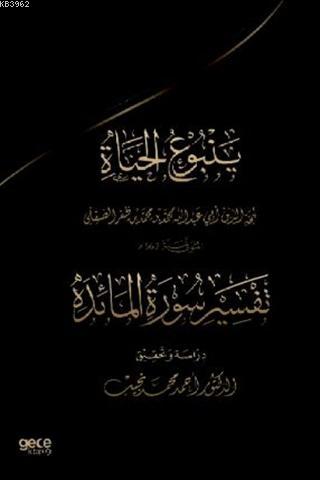 KB3962
ينبوع الحياة
لحجة الدين أبي عبد الله محمد بن محمد بن ظفر الصقلي
تفسير سورة المائدة
دراسة وتحقيق
الدكتور أحمد محمد نجيب
gece